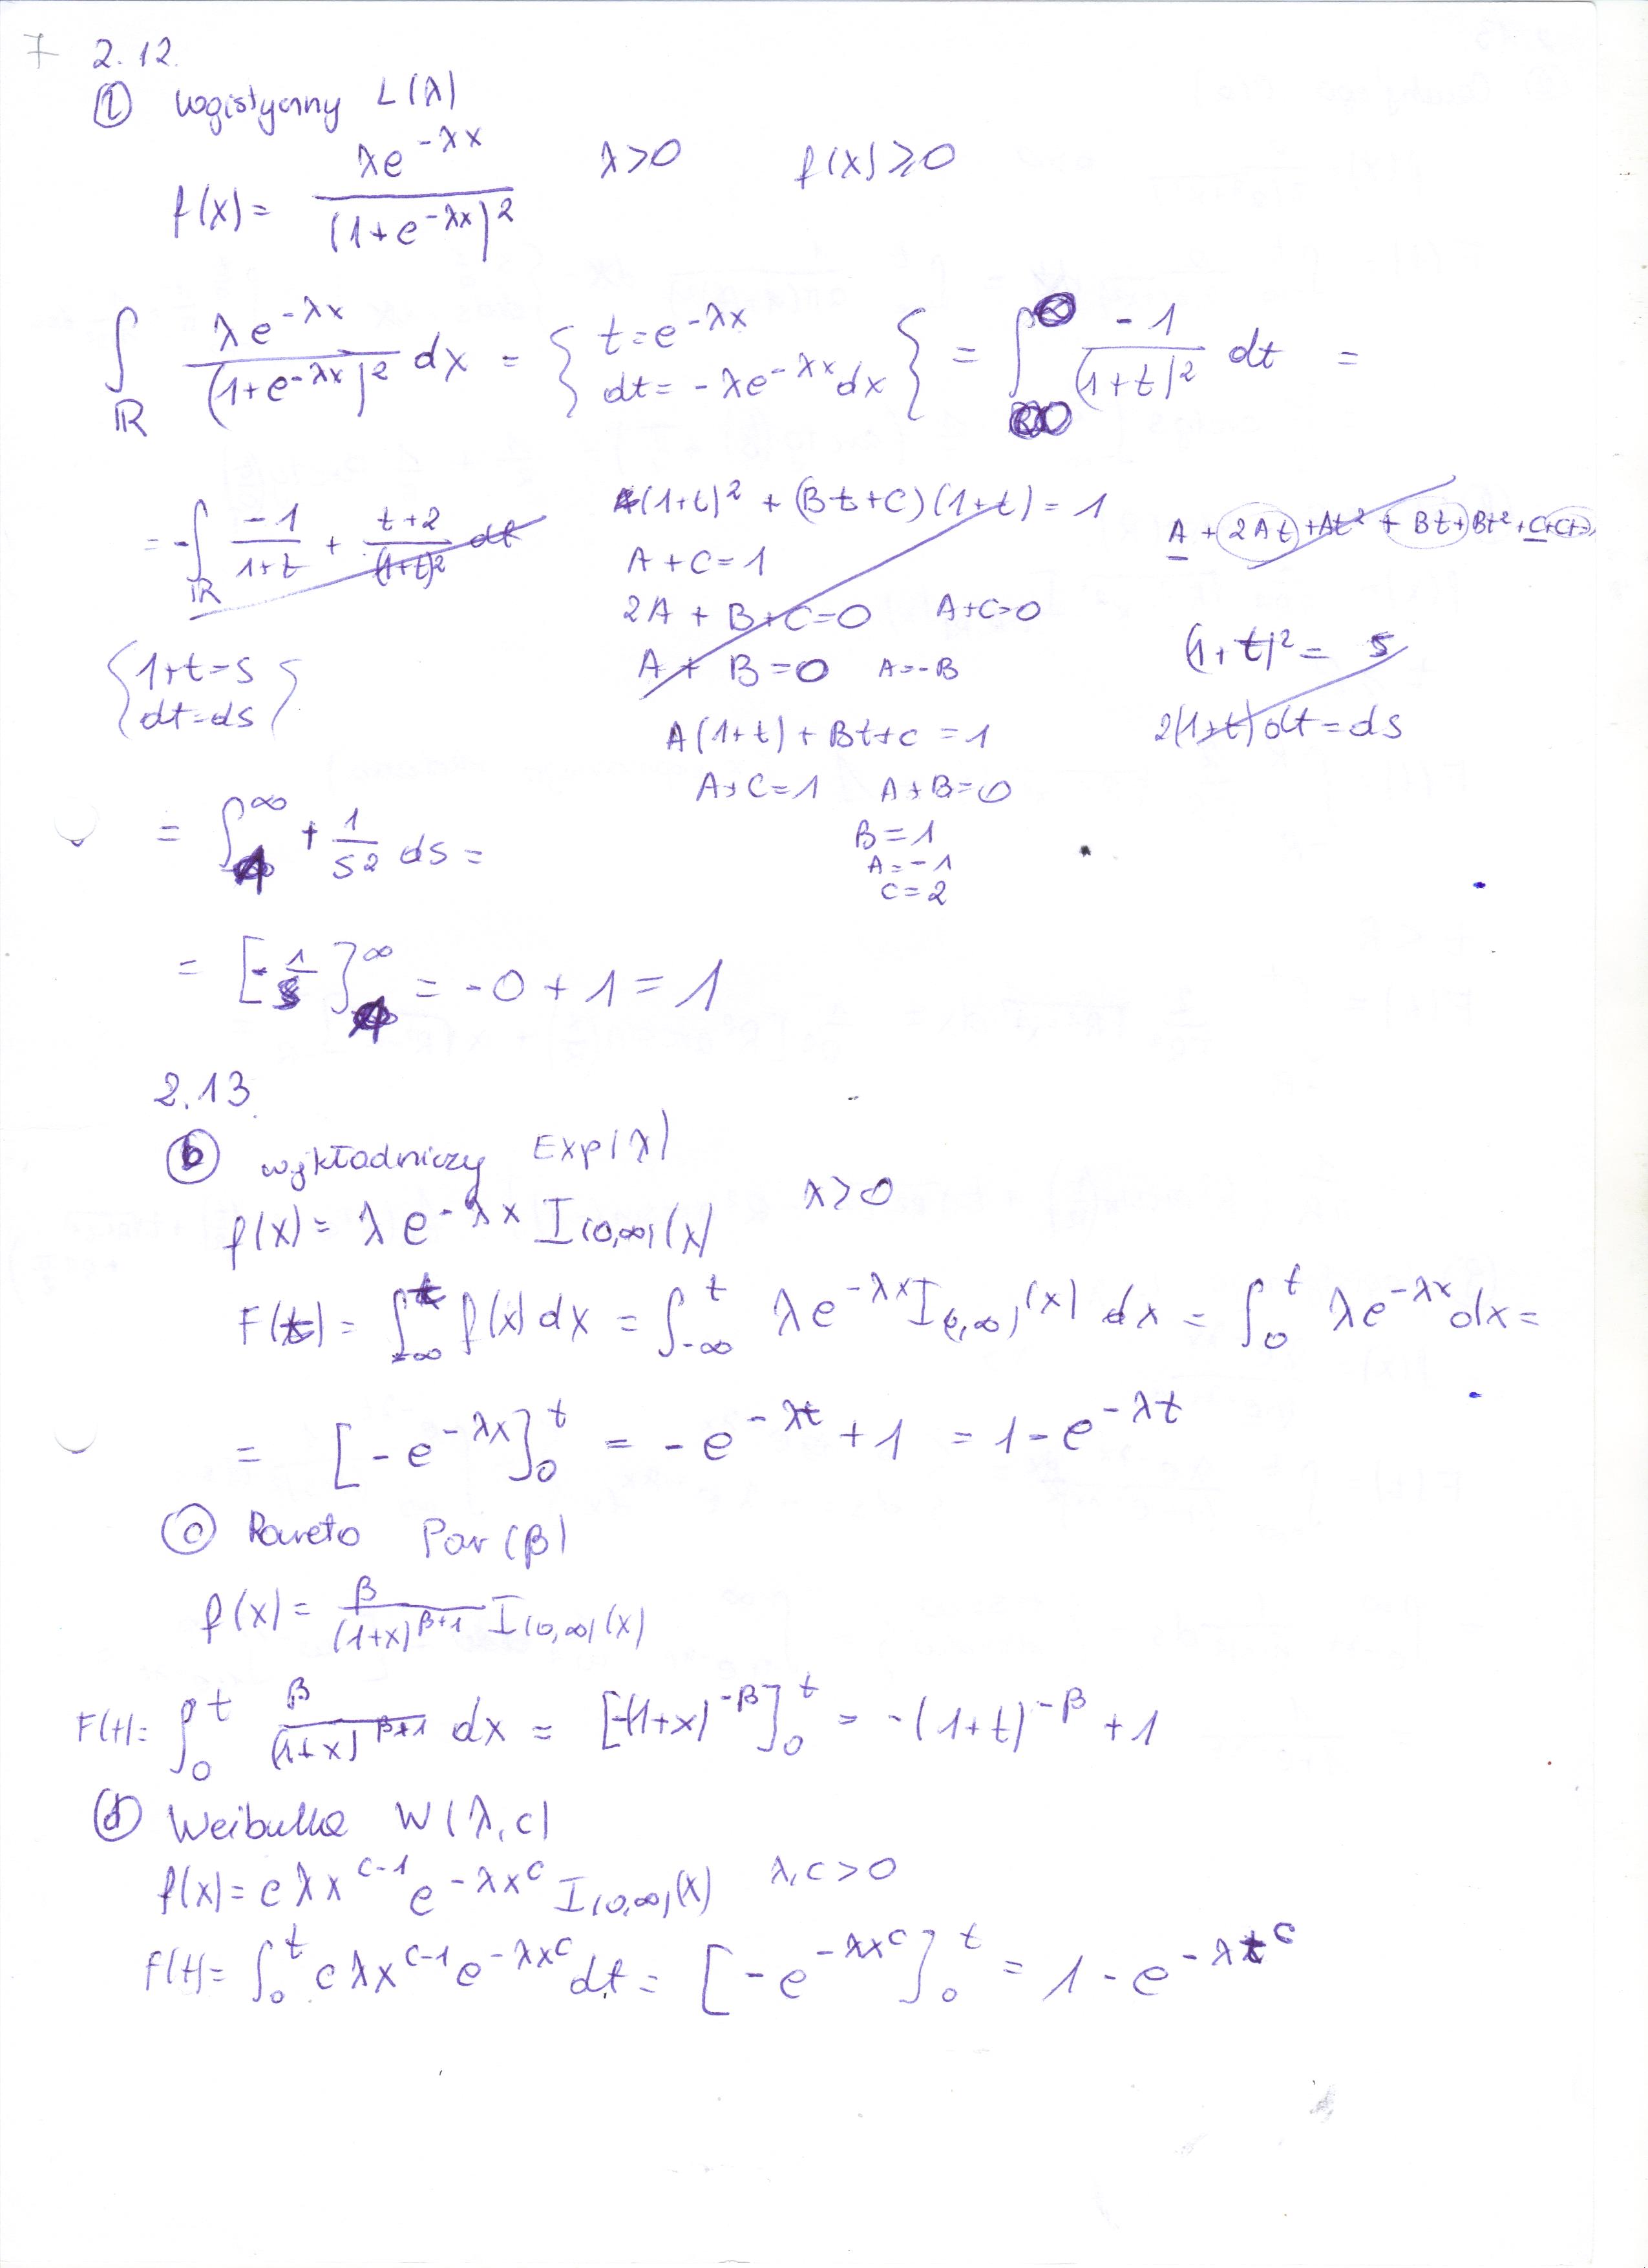 7 2.12.
(l) logistyczny L(λ)
f(x) = λe^{-λx} / (1+e^{-λx})² λ>0 f(x)≥0
∫_ℝ λe^{-λx} / (1+e^{-λx})² dx = { t=e^{-λx} dt=-λe^{-λx}dx } = ∫ -1/(1+t)² dt =
= -∫_ℝ -1/(1+t) + (t+2)/(1+t)² dt
A(1+t)² + (Bt+C)(1+t) = 1
A + 2At + At² + Bt + Bt² + C + Ct =
A+C=1
2A + B+C=0 A+C=0
A + B=0 A=-B
(1+t)² = s
2(1+t)dt = ds
{ 1+t=s dt=ds }
A(1+t) + Bt+C = 1
A+C=1 A+B=0
B=1
A=-1
C=2
= ∫_1^∞ + 1/s² ds =
= [-1/s]_1^∞ = -0 + 1 = 1
2.13
(b) wykładniczy Exp(λ)
f(x) = λe^{-λx} I_{(0,∞)}(x) λ>0
F(t) = ∫_{-∞}^t f(x)dx = ∫_{-∞}^t λe^{-λx} I_{(0,∞)}(x) dx = ∫_0^t λe^{-λx}dx =
= [-e^{-λx}]_0^t = -e^{-λt} + 1 = 1-e^{-λt}
(c) Pareto Par(β)
f(x) = β/(1+x)^{β+1} I_{(0,∞)}(x)
F(t) = ∫_0^t β/(1+x)^{β+1} dx = [-(1+x)^{-β}]_0^t = -(1+t)^{-β} + 1
(d) Weibulla W(λ,c)
f(x) = cλx^{c-1}e^{-λx^c} I_{(0,∞)}(x) λ,c>0
F(t) = ∫_0^t cλx^{c-1}e^{-λx^c}dt = [-e^{-λx^c}]_0^t = 1-e^{-λt^c}